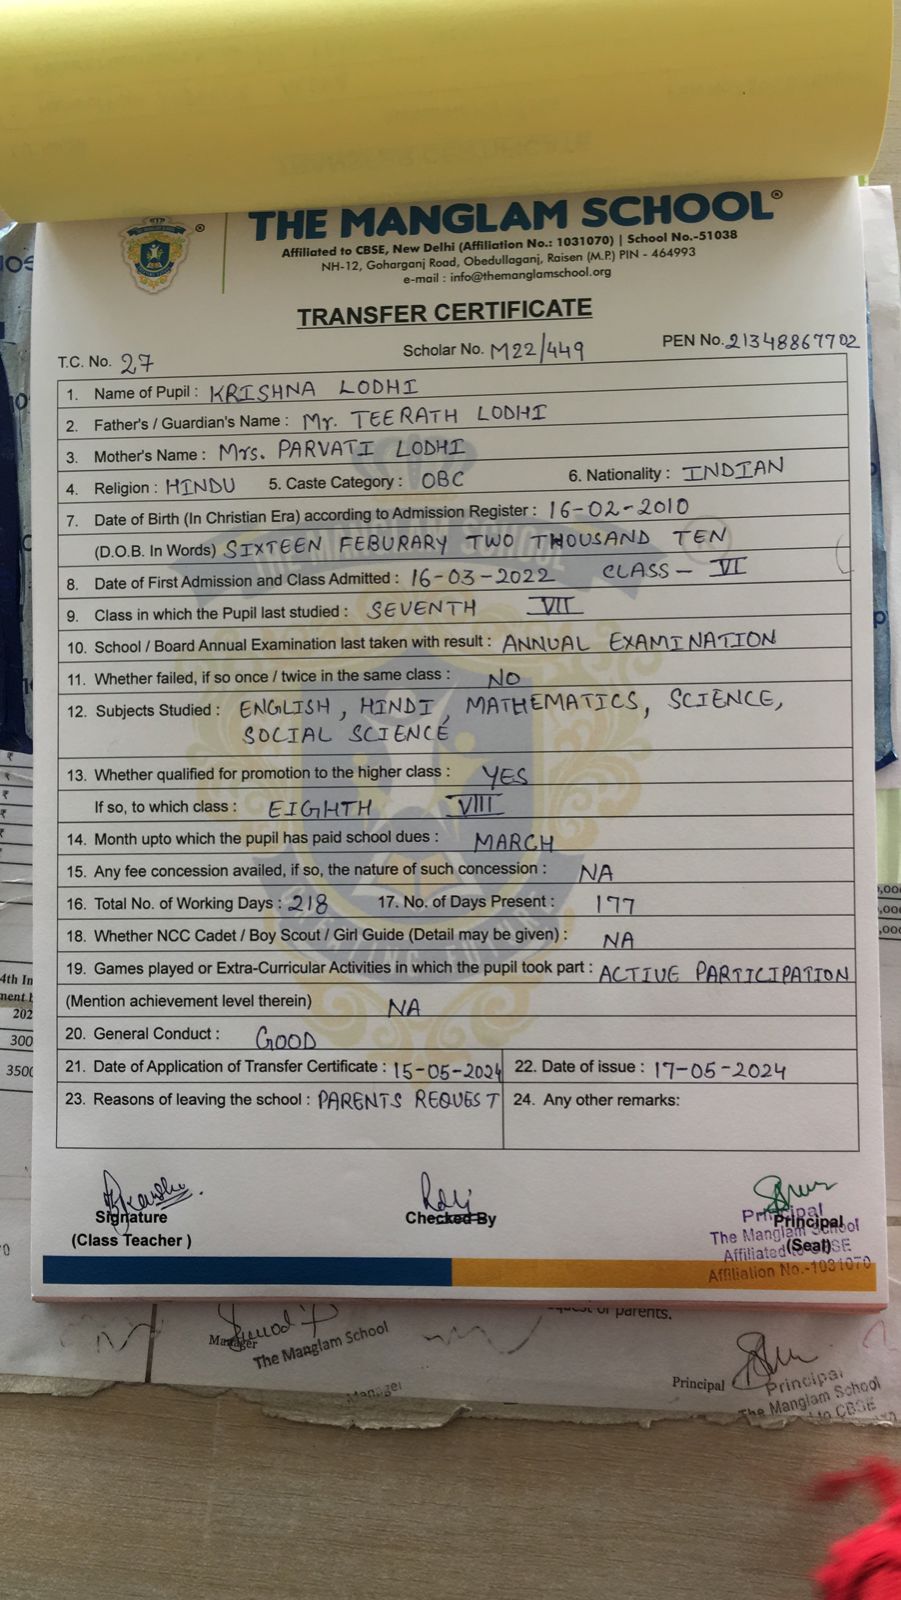 THE MANGLAM SCHOOL®
Affiliated to CBSE, New Delhi (Affiliation No.: 1031070) | School No.-51038
NH-12, Goharganj Road, Obedullaganj, Raisen (M.P.) PIN - 464993
e-mail : info@themanglamschool.org
TRANSFER CERTIFICATE
T.C. No. 27 Scholar No. M22/449 PEN No. 21348867702
1. Name of Pupil : KRISHNA LODHI
2. Father's / Guardian's Name : Mr. TEERATH LODHI
3. Mother's Name : Mrs. PARVATI LODHI
4. Religion : HINDU 5. Caste Category : OBC 6. Nationality : INDIAN
7. Date of Birth (In Christian Era) according to Admission Register : 16-02-2010
(D.O.B. In Words) SIXTEEN FEBURARY TWO THOUSAND TEN
8. Date of First Admission and Class Admitted : 16-03-2022 CLASS - VI
9. Class in which the Pupil last studied : SEVENTH VII
10. School / Board Annual Examination last taken with result : ANNUAL EXAMINATION
11. Whether failed, if so once / twice in the same class : NO
12. Subjects Studied : ENGLISH, HINDI, MATHEMATICS, SCIENCE,
SOCIAL SCIENCE
13. Whether qualified for promotion to the higher class : YES
If so, to which class : EIGHTH VIII
14. Month upto which the pupil has paid school dues : MARCH
15. Any fee concession availed, if so, the nature of such concession : NA
16. Total No. of Working Days : 218 17. No. of Days Present : 177
18. Whether NCC Cadet / Boy Scout / Girl Guide (Detail may be given) : NA
19. Games played or Extra-Curricular Activities in which the pupil took part : ACTIVE PARTICIPATION
(Mention achievement level therein) NA
20. General Conduct : GOOD
21. Date of Application of Transfer Certificate : 15-05-2024 22. Date of issue : 17-05-2024
23. Reasons of leaving the school : PARENTS REQUEST 24. Any other remarks:
Signature Checked By Principal
(Class Teacher ) (Seal)
Principal
The Manglam School
Affiliated to CBSE
Affiliation No.-1031070
of parents.
Manager
The Manglam School
Manager
Principal
Principal
The Manglam School
to CBSE
4th In
202
300
3500